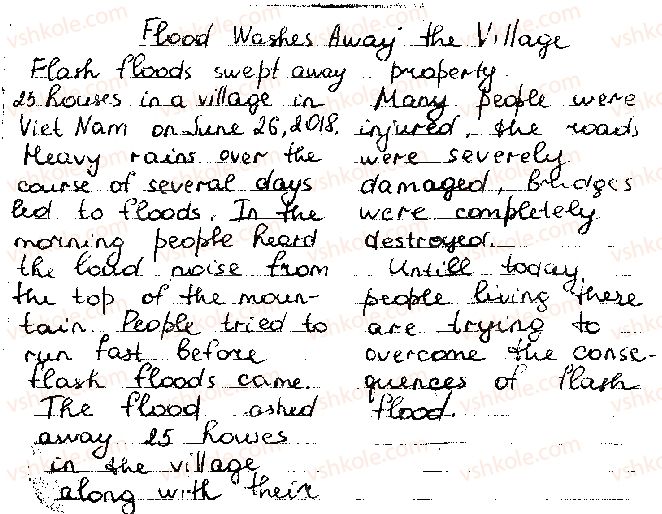 Flood Washes Away the Village
Flash floods swept away
25 houses in a village in
Viet Nam on June 26, 2018.
Heavy rains over the
course of several days
led to floods. In the
morning people heard
the loud noise from
the top of the moun-
tain. People tried to
run fast before
flash floods came.
The flood ashed
away 25 houses
in the village
along with their
property.
Many people were
injured, the roads
were severely
damaged, Bridges
were completely
destroyed.
Untill today,
people living there
are trying to
overcome the conse-
quences of flash
flood.